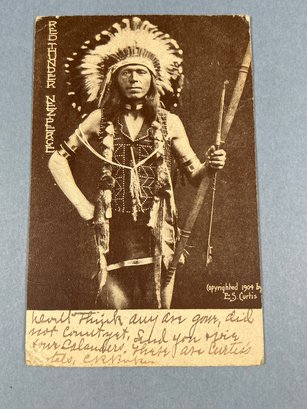 RED THUNDER NEZ PERCE
Copyrighted 1904 by
E.S. Curtis
Think any are gone, did
not Count yet, Send you
four Calanders, These are Curtis